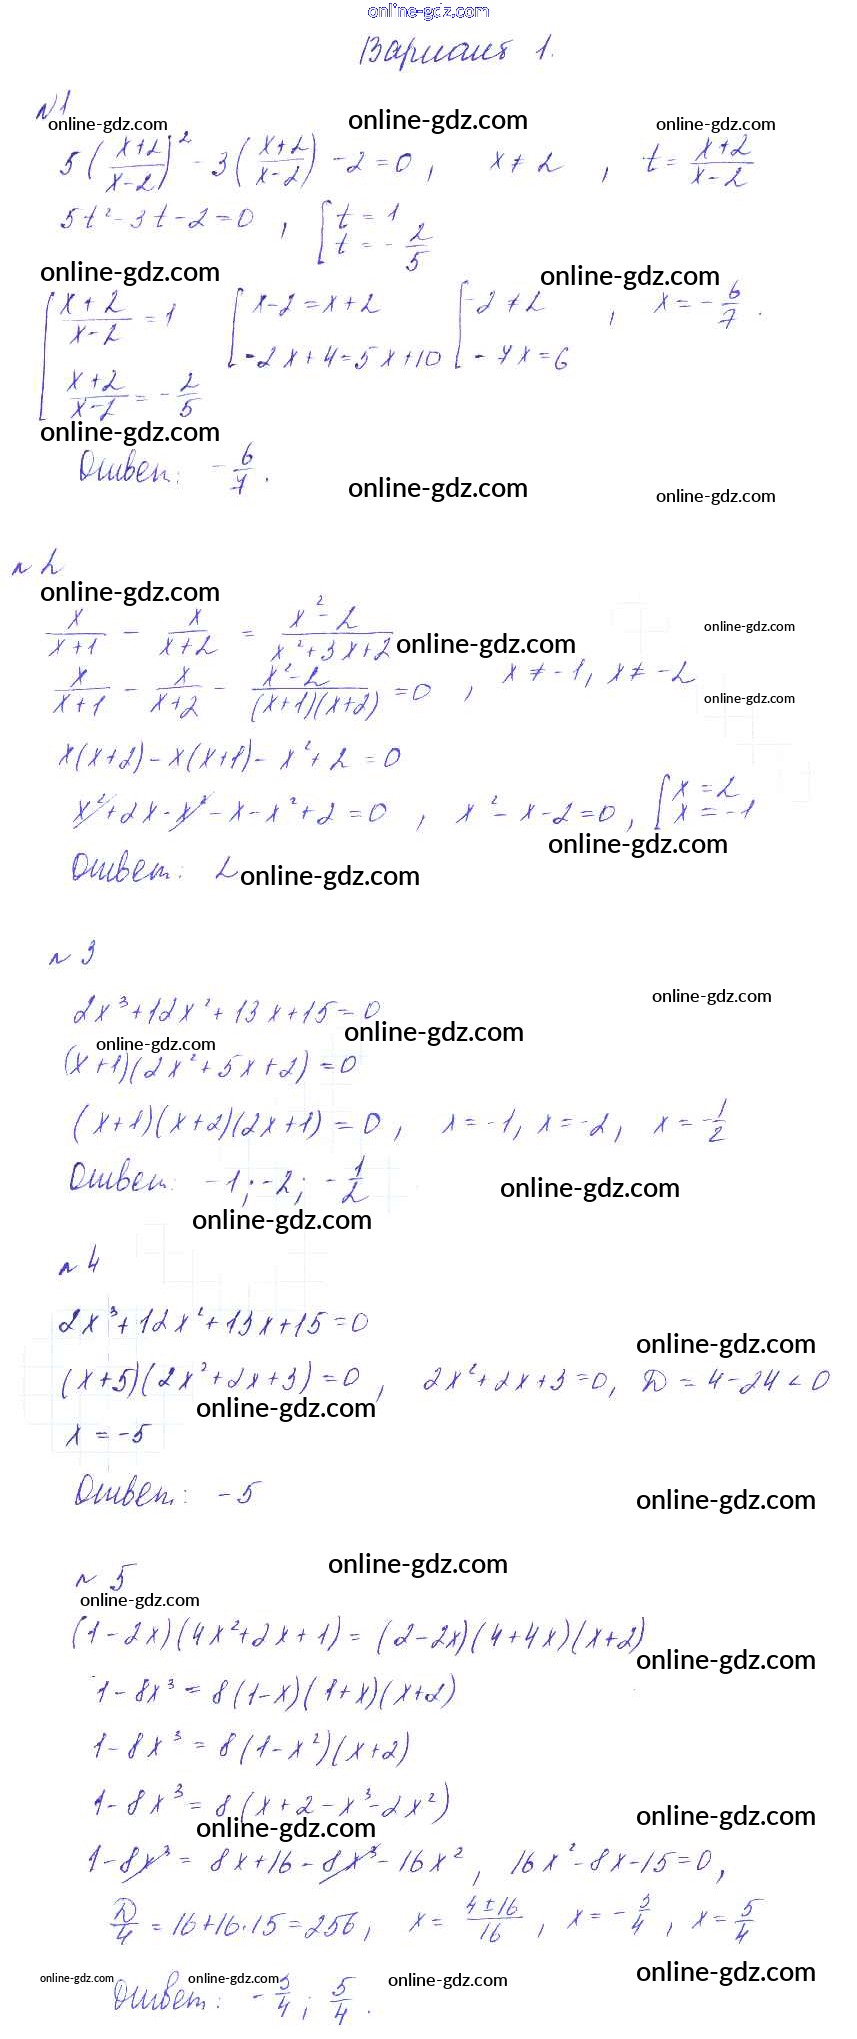 online-gdz.com
Вариант 1.
№1
online-gdz.com online-gdz.com online-gdz.com
5((x+2)/(x-2))² - 3((x+2)/(x-2)) - 2 = 0, x ≠ 2, t = (x+2)/(x-2)
5t² - 3t - 2 = 0, [t = 1
t = -2/5
online-gdz.com online-gdz.com
[(x+2)/(x-2) = 1 [x-2 = x+2 [-2 ≠ 2, x = -6/7.
(x+2)/(x-2) = -2/5 -2x+4 = 5x+10 -7x = 6
online-gdz.com
Ответ: -6/7.
online-gdz.com online-gdz.com
№2
online-gdz.com
x/(x+1) - x/(x+2) = (x²-2)/(x²+3x+2)
online-gdz.com online-gdz.com
x/(x+1) - x/(x+2) - (x²-2)/((x+1)(x+2)) = 0, x ≠ -1, x ≠ -2
online-gdz.com
x(x+2) - x(x+1) - x² + 2 = 0
x² + 2x - x² - x - x² + 2 = 0, x² - x - 2 = 0, [x = 2
x = -1
online-gdz.com
Ответ: 2
online-gdz.com
№3
online-gdz.com
2x³ + 12x² + 13x + 15 = 0
online-gdz.com online-gdz.com
(x+1)(2x² + 5x + 2) = 0
(x+1)(x+2)(2x+1) = 0, x = -1, x = -2, x = -1/2
Ответ: -1; -2; -1/2
online-gdz.com
online-gdz.com
№4
2x³ + 12x² + 13x + 15 = 0
online-gdz.com
(x+5)(2x² + 2x + 3) = 0, 2x² + 2x + 3 = 0, D = 4 - 24 < 0
online-gdz.com
x = -5
Ответ: -5
online-gdz.com
online-gdz.com
№5
online-gdz.com
(1-2x)(4x²+2x+1) = (2-2x)(4+4x)(x+2)
online-gdz.com
1 - 8x³ = 8(1-x)(1+x)(x+2)
1 - 8x³ = 8(1-x²)(x+2)
1 - 8x³ = 8(x+2-x³-2x²)
online-gdz.com online-gdz.com
1 - 8x³ = 8x + 16 - 8x³ - 16x², 16x² - 8x - 15 = 0,
D/4 = 16 + 16·15 = 256, x = (4±16)/16, x = -3/4, x = 5/4
online-gdz.com online-gdz.com online-gdz.com online-gdz.com
Ответ: -3/4; 5/4.